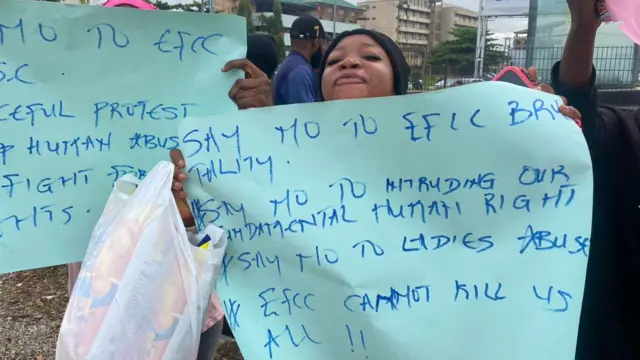 MO TO EFCC
CEFUL PROTEST
HUMAN ABUS
FIGHT
SAY MO TO EFCC BRU
TALITY.
*SAY MO TO INTRUDING OUR
FUNDAMENTAL HUMAN RIGHT
*SAY MO TO LADIES ABUSE
* EFCC CANNOT KILL US
ALL !!